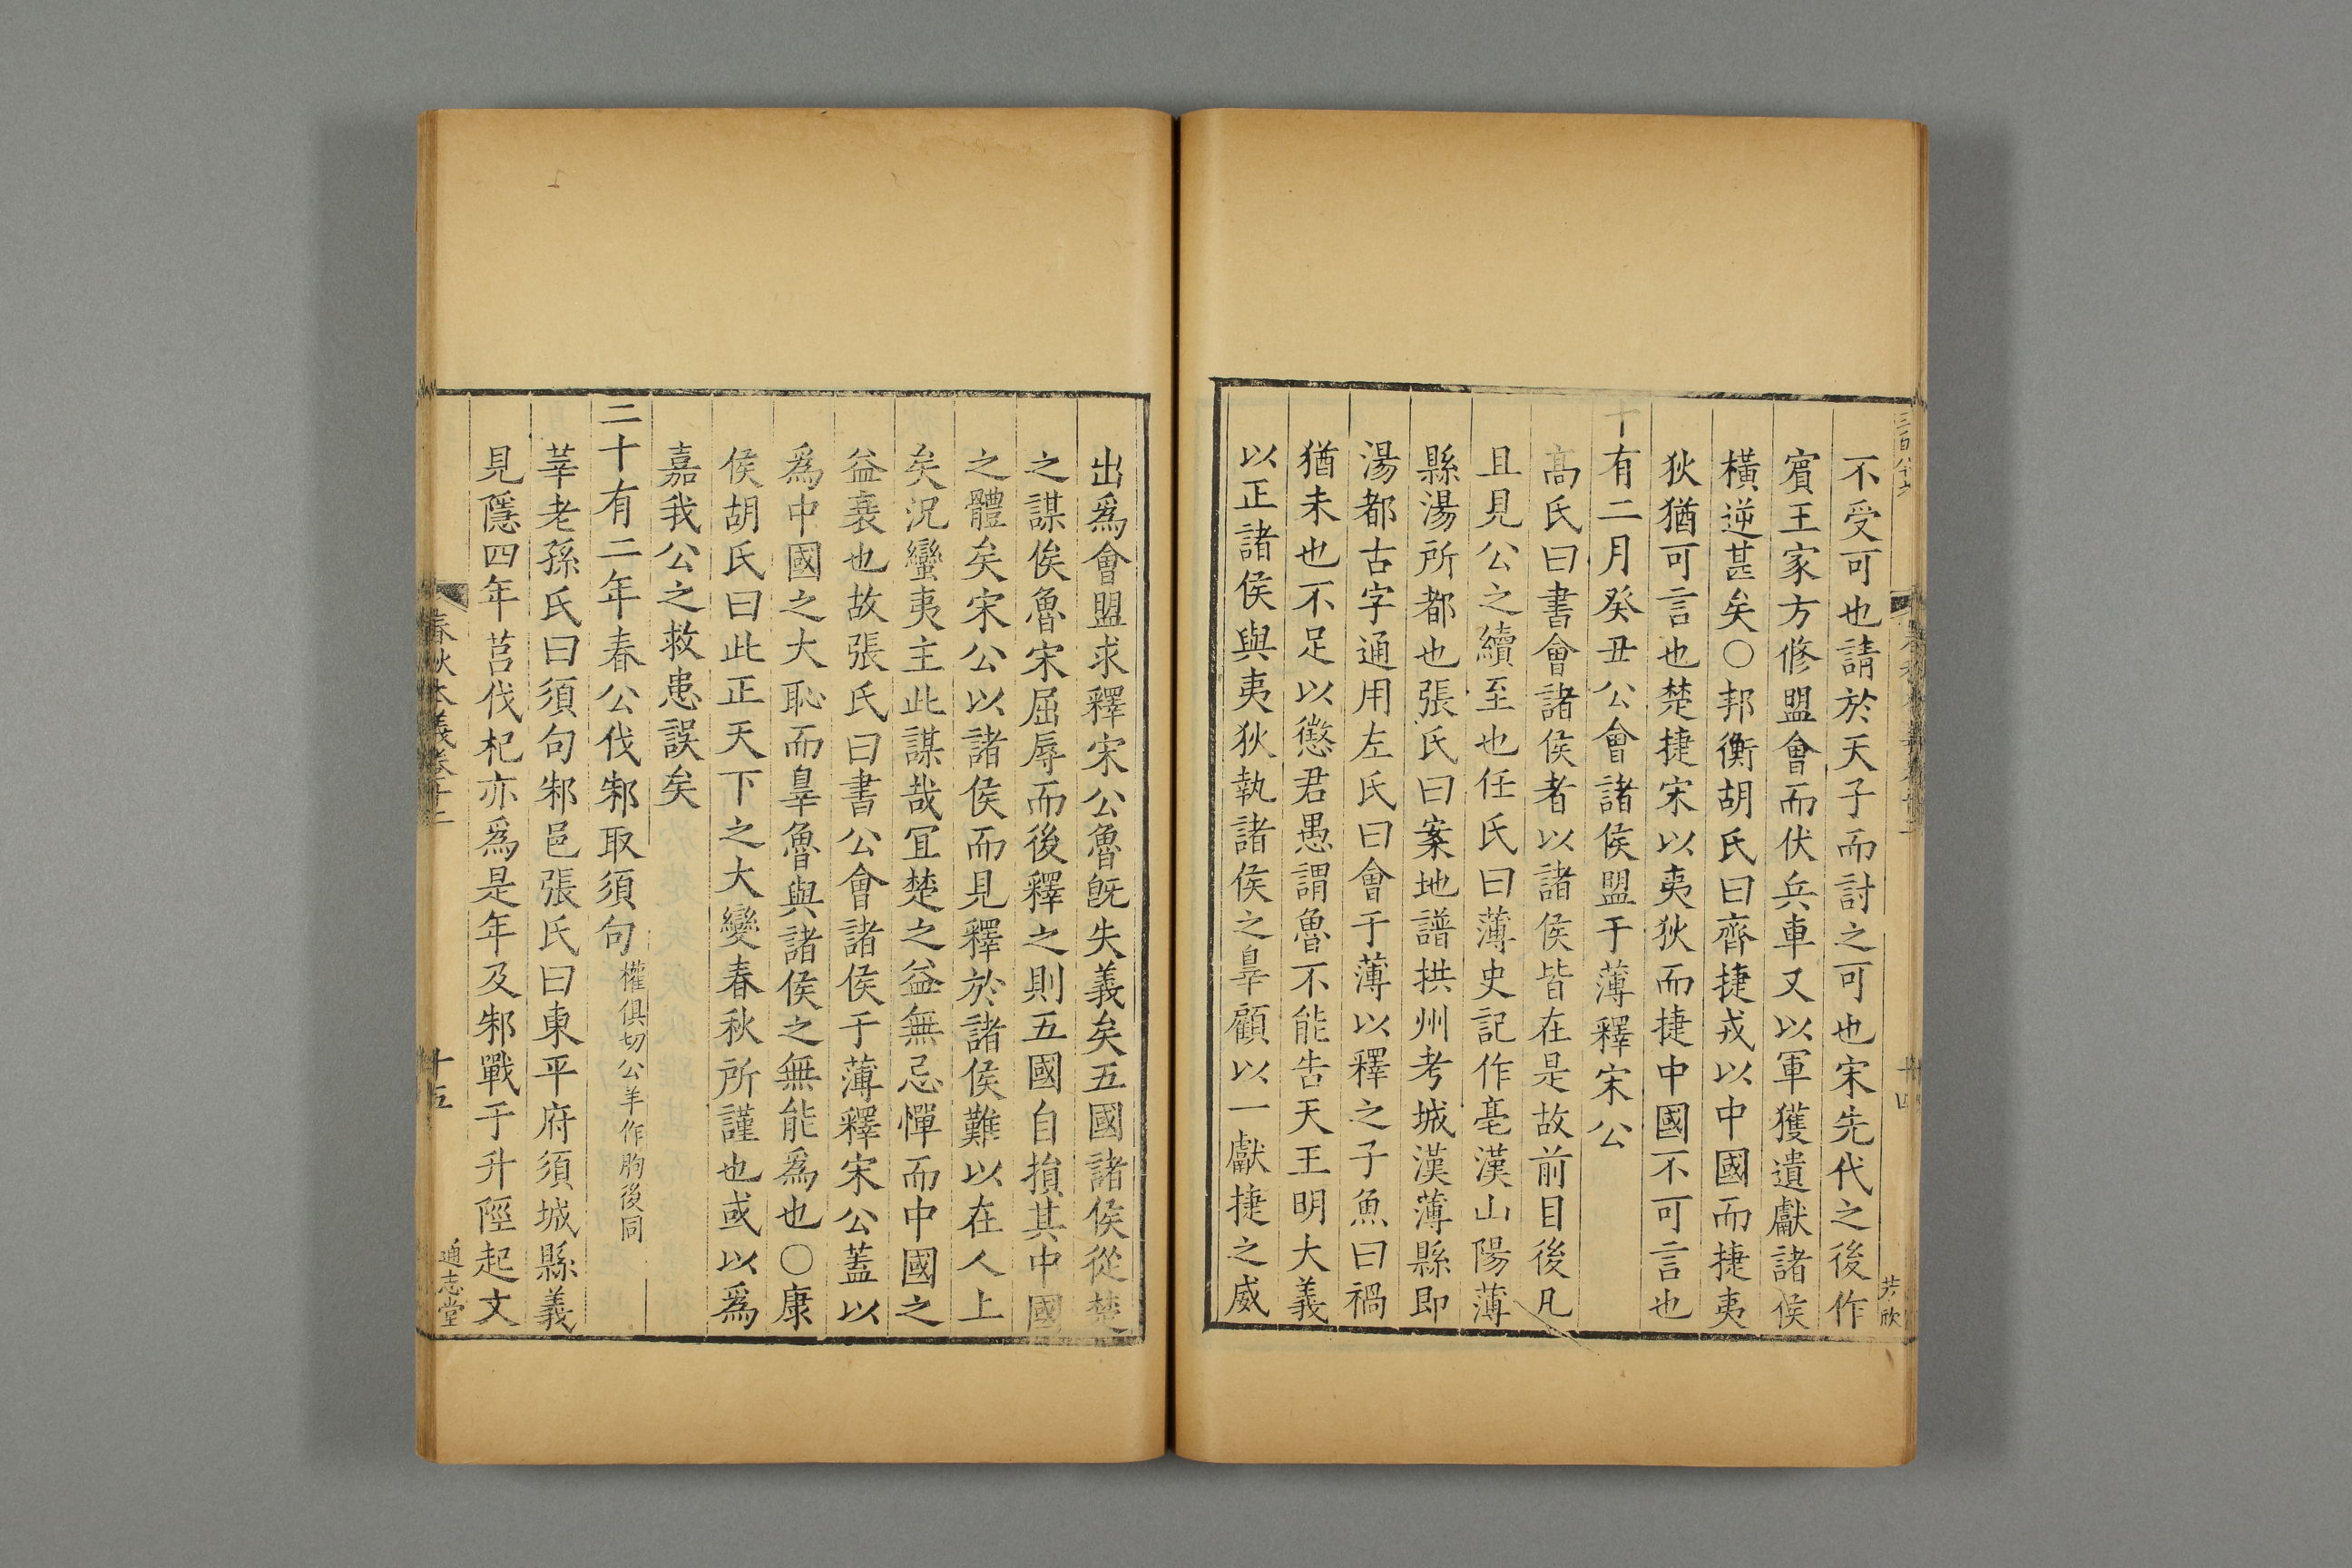 不受可也請於天子而討之可也宋先代之後作
賓王家方修盟會而伏兵車又以軍獲遺獻諸侯
橫逆甚矣〇邦衡胡氏曰齊捷戎以中國而捷夷
狄猶可言也楚捷宋以夷狄而捷中國不可言也
十有二月癸丑公會諸侯盟于薄釋宋公
高氏曰書會諸侯者以諸侯皆在是故前目後凡
且見公之續至也任氏曰薄史記作亳漢山陽薄
縣湯所都也張氏曰案地譜拱州考城漢薄縣即
湯都古字通用左氏曰會于薄以釋之子魚曰禍
猶未也不足以懲君愚謂魯不能告天王明大義
以正諸侯與夷狄執諸侯之辠顧以一獻捷之威
出爲會盟求釋宋公魯旣失義矣五國諸侯從楚
之謀俟魯宋屈辱而後釋之則五國自損其中國
之體矣宋公以諸侯而見釋於諸侯難以在人上
矣況蠻夷主此謀哉宜楚之益無忌憚而中國之
益衰也故張氏曰書公會諸侯于薄釋宋公蓋以
爲中國之大恥而辠魯與諸侯之無能爲也〇康
侯胡氏曰此正天下之大變春秋所謹也或以爲
嘉我公之救患誤矣
二十有二年春公伐邾取須句權俱切公羊作朐後同
莘老孫氏曰須句邾邑張氏曰東平府須城縣義
見隱四年莒伐杞亦爲是年及邾戰于升陘起文
春秋本義卷十二
十五
通志堂